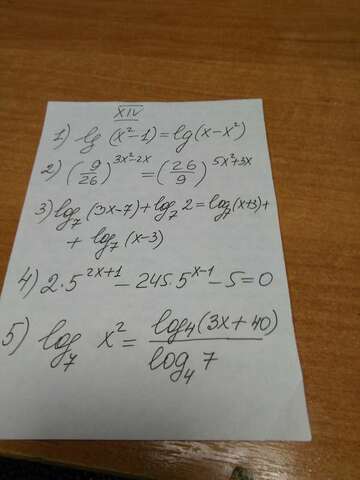 XIV
1) lg (x²-1) = lg(x-x²)
2) (9/26)^(3x²-2x) = (26/9)^(5x²+3x)
3) log₇ (3x-7) + log₇ 2 = log₇(x+3) +
+ log₇ (x-3)
4) 2·5^(2x+1) - 245·5^(x-1) - 5 = 0
5) log₇ x² = log₄(3x+40) / log₄ 7